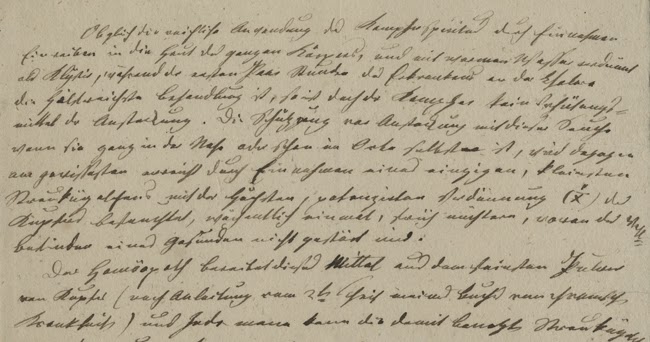 Obgleich die reichliche Anwendung des Kampherspiritus durch Einnehmen
Einreiben in die Haut des ganzen Körpers, und mit warmem Wasser verdünnt
als Klystir, während der ersten Paar Stunden des Erkrankens an der Cholera
die hülfreichste Behandlung ist, so ist doch der Kampher kein Schützungs-
mittel der Ansteckung. Die Schützung vor Ansteckung mit dieser Seuche
wenn sie ganz in der Nähe oder schon im Orte selbst ist, wird dagegen
am gewissesten erreicht durch Einnehmen eines einzigen, kleinsten
Streukügelchens mit der höchsten, potenzirten Verdünnung (X) des
Kupfers befeuchtet, wöchentlich einmal, früh nüchtern, wovon das Wohl-
befinden eines Gesunden nicht gestört wird.
Der Homöopath bereitet dieses Mittel aus dem feinsten Pulver
von Kupfer (nach Anleitung vom 2ten Theile meines Buchs von chronisch
Krankheit) und jedermann kann die damit benetzten Streukügelch